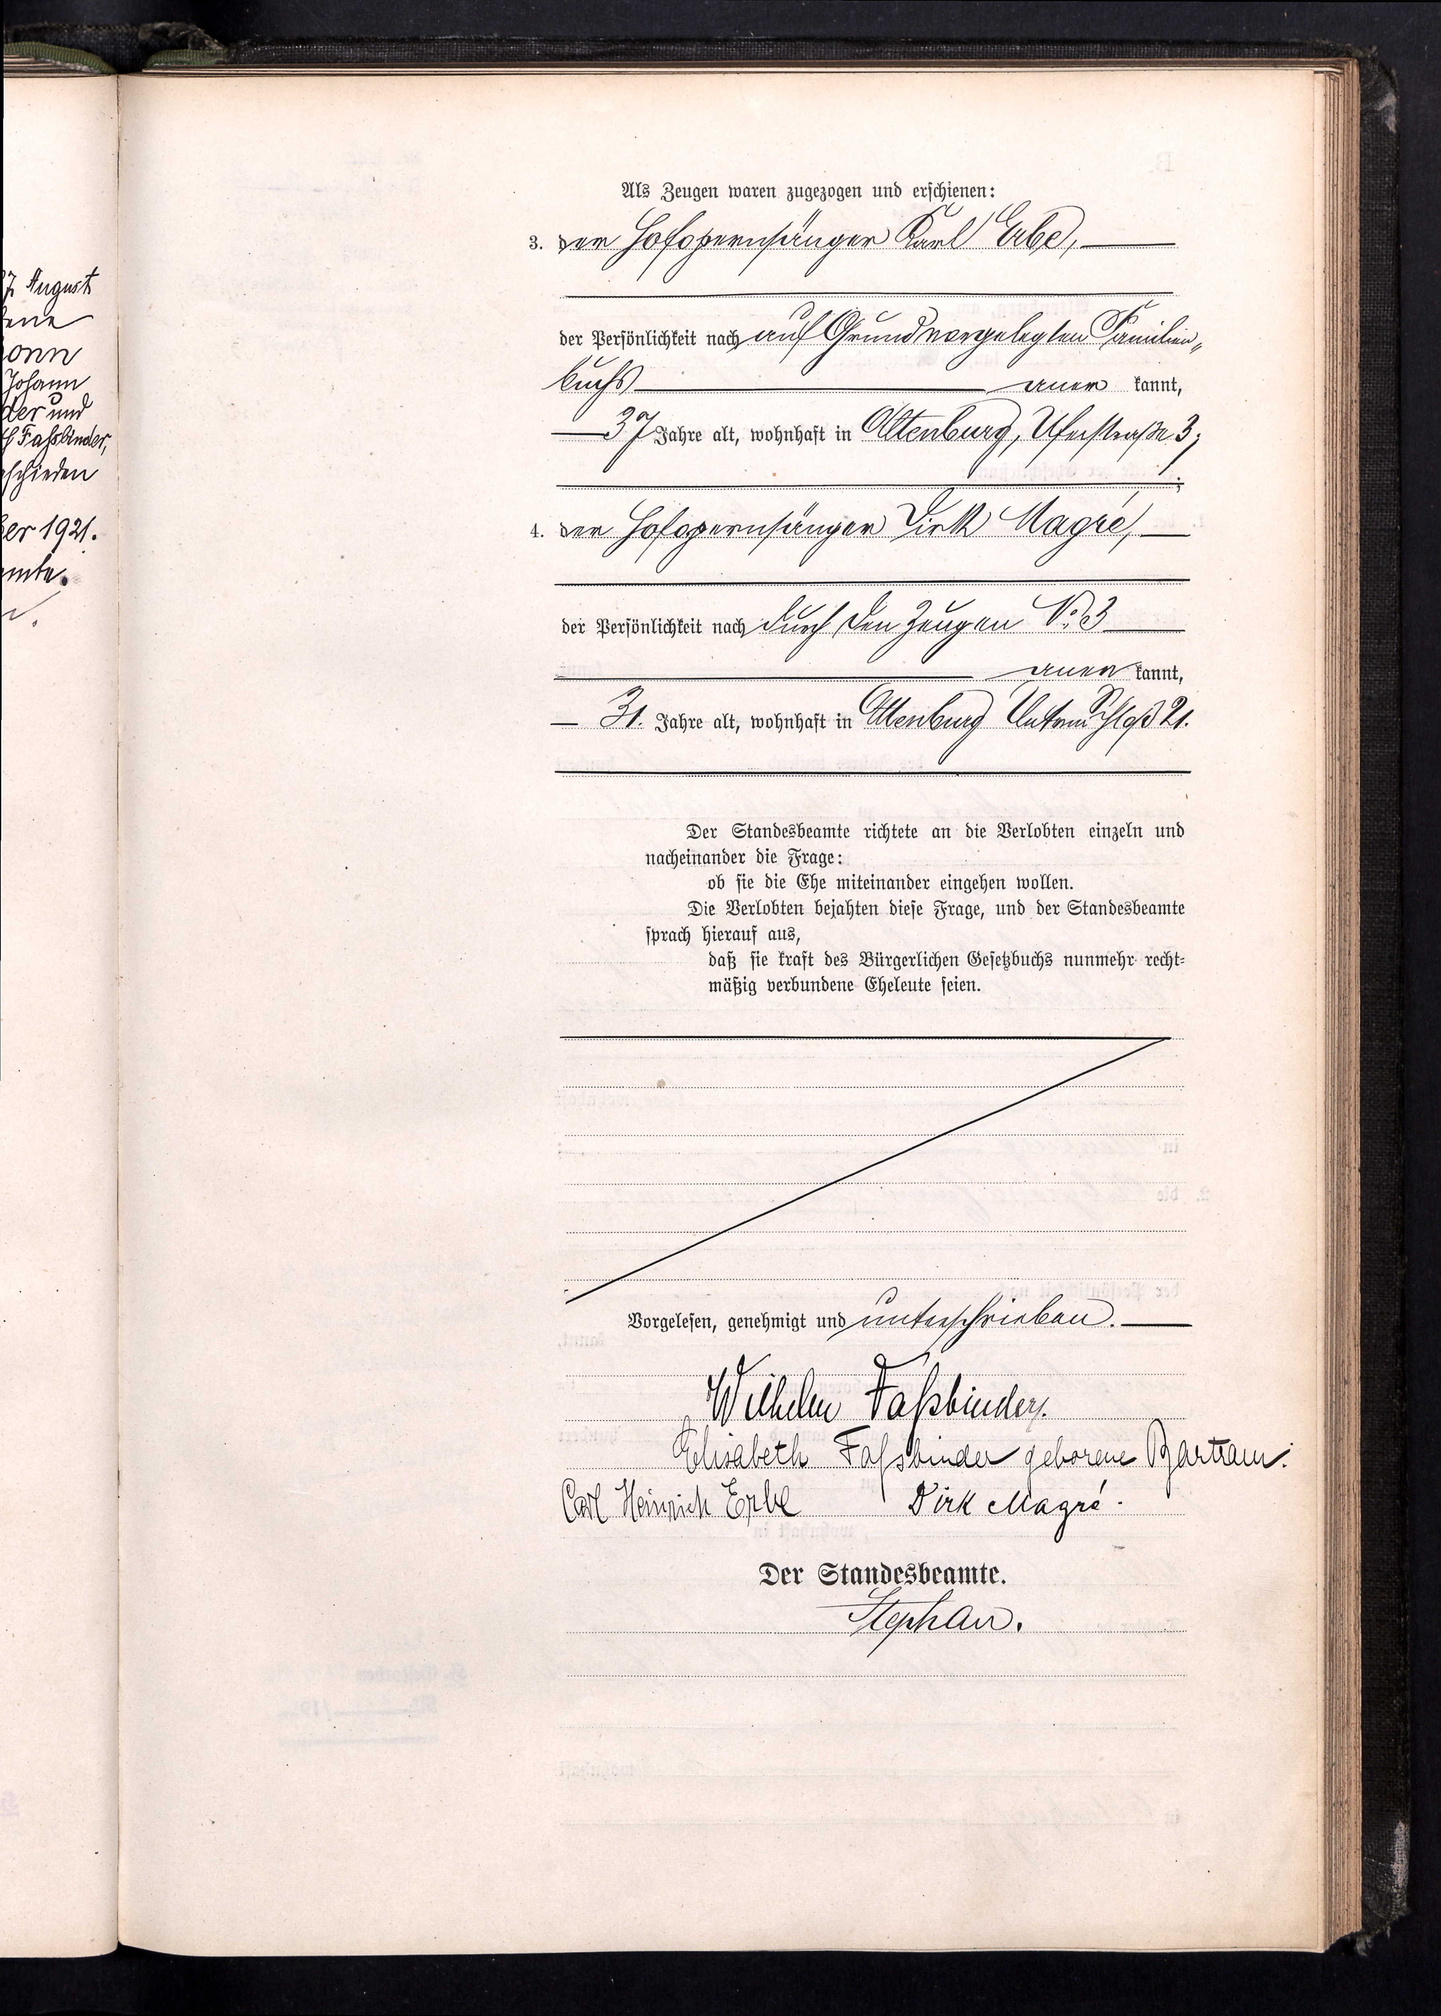 7. August
Johann
der und
Faßbinder,
schieden
er 1921.
Als Zeugen waren zugezogen und erschienen:
3. der Hofopernsänger Karl Erbe,
der Persönlichkeit nach auf Grund vorgelegten Familien-
buchs aner kannt,
37 Jahre alt, wohnhaft in Altenburg, Uferstraße 3;
;
4. der Hofopernsänger Dirk Magré,
der Persönlichkeit nach durch den Zeugen No. 3
aner kannt,
31. Jahre alt, wohnhaft in Altenburg 21.
Der Standesbeamte richtete an die Verlobten einzeln und
nacheinander die Frage:
ob sie die Ehe miteinander eingehen wollen.
Die Verlobten bejahten diese Frage, und der Standesbeamte
sprach hierauf aus,
daß sie kraft des Bürgerlichen Gesetzbuchs nunmehr recht-
mäßig verbundene Eheleute seien.
Vorgelesen, genehmigt und unterschrieben.
Wilhelm Faßbinder.
Elisabeth Faßbinder geborene Bartram.
Carl Heinrich Erbe Dirk Magré.
Der Standesbeamte.
Stephan.